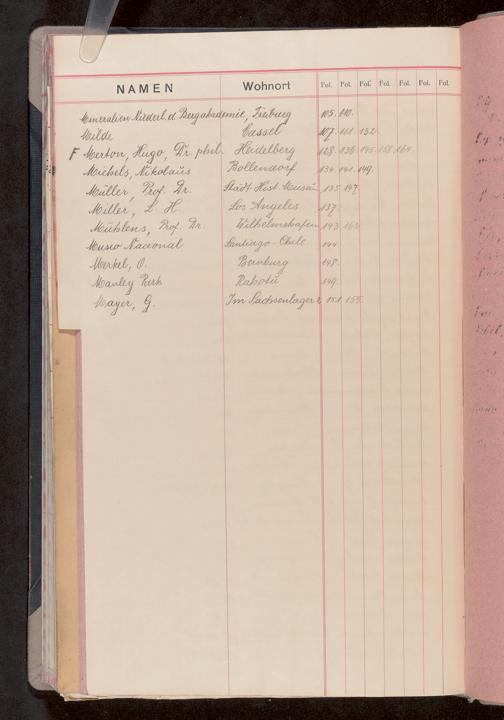 NAMEN Wohnort Fol. Fol. Fol. Fol. Fol. Fol. Fol.
Mineralien Niederl. d. Bergakademie, Freiburg 105. 110.
Milde Cassel 107. 111. 132.
F Merton, Hugo, Dr. phil. Heidelberg 128. 138. 145. 158. 164.
Michels, Nikolaus Bollendorf 134. 141. 149.
Müller, Prof. Dr. Städt. Hist. Museum 135. 147.
Miller, L. H. Los Angeles 137.
Mühlens, Prof. Dr. Wilhelmshafen 143.
Museo Nacional Santiago-Chile 144.
Merkel, O. Bernburg 148.
Manley 149.
Mayer, G. Im Sachsenlager 151. 155.